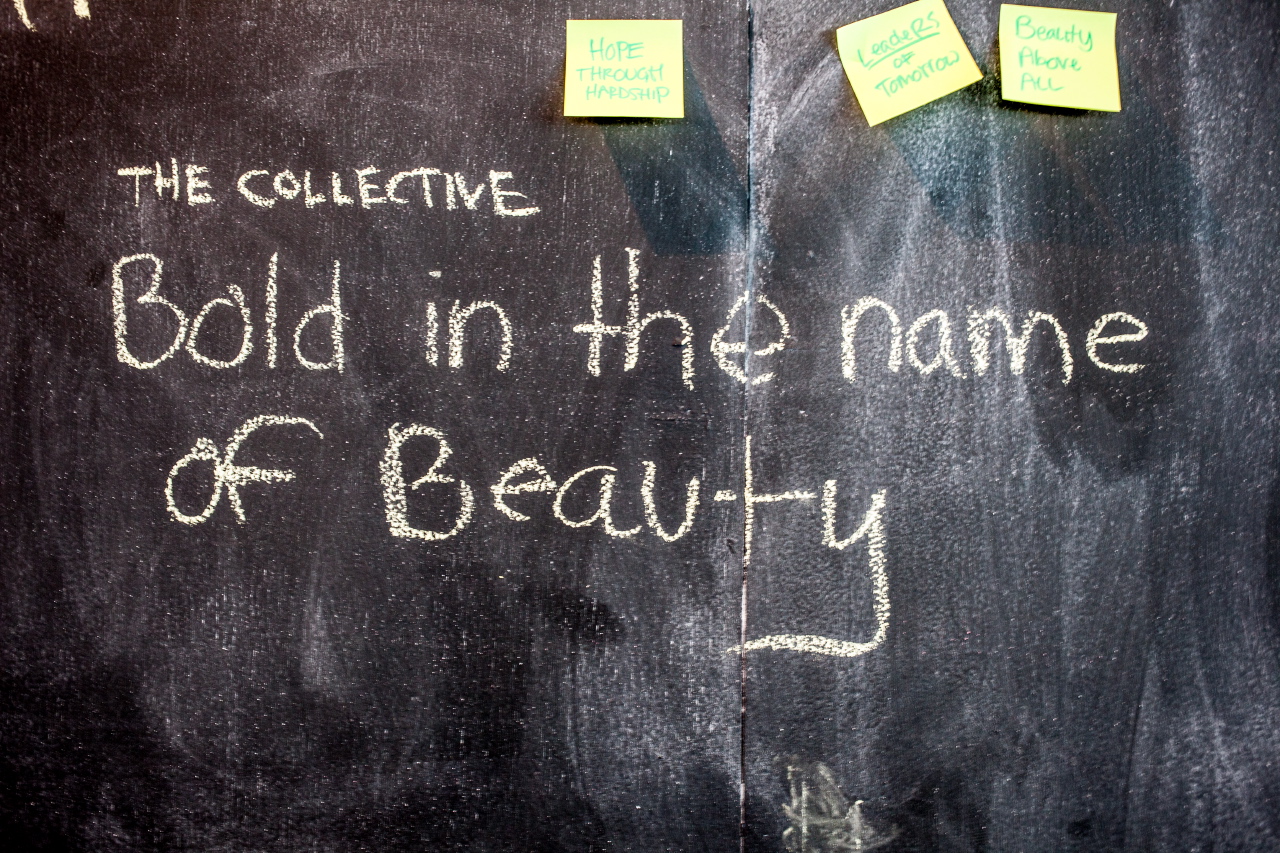 HOPE
THROUGH
HARDSHIP
Leaders
OF
Tomorrow
Beauty
Above
ALL
THE COLLECTIVE
Bold in the name
of Beauty